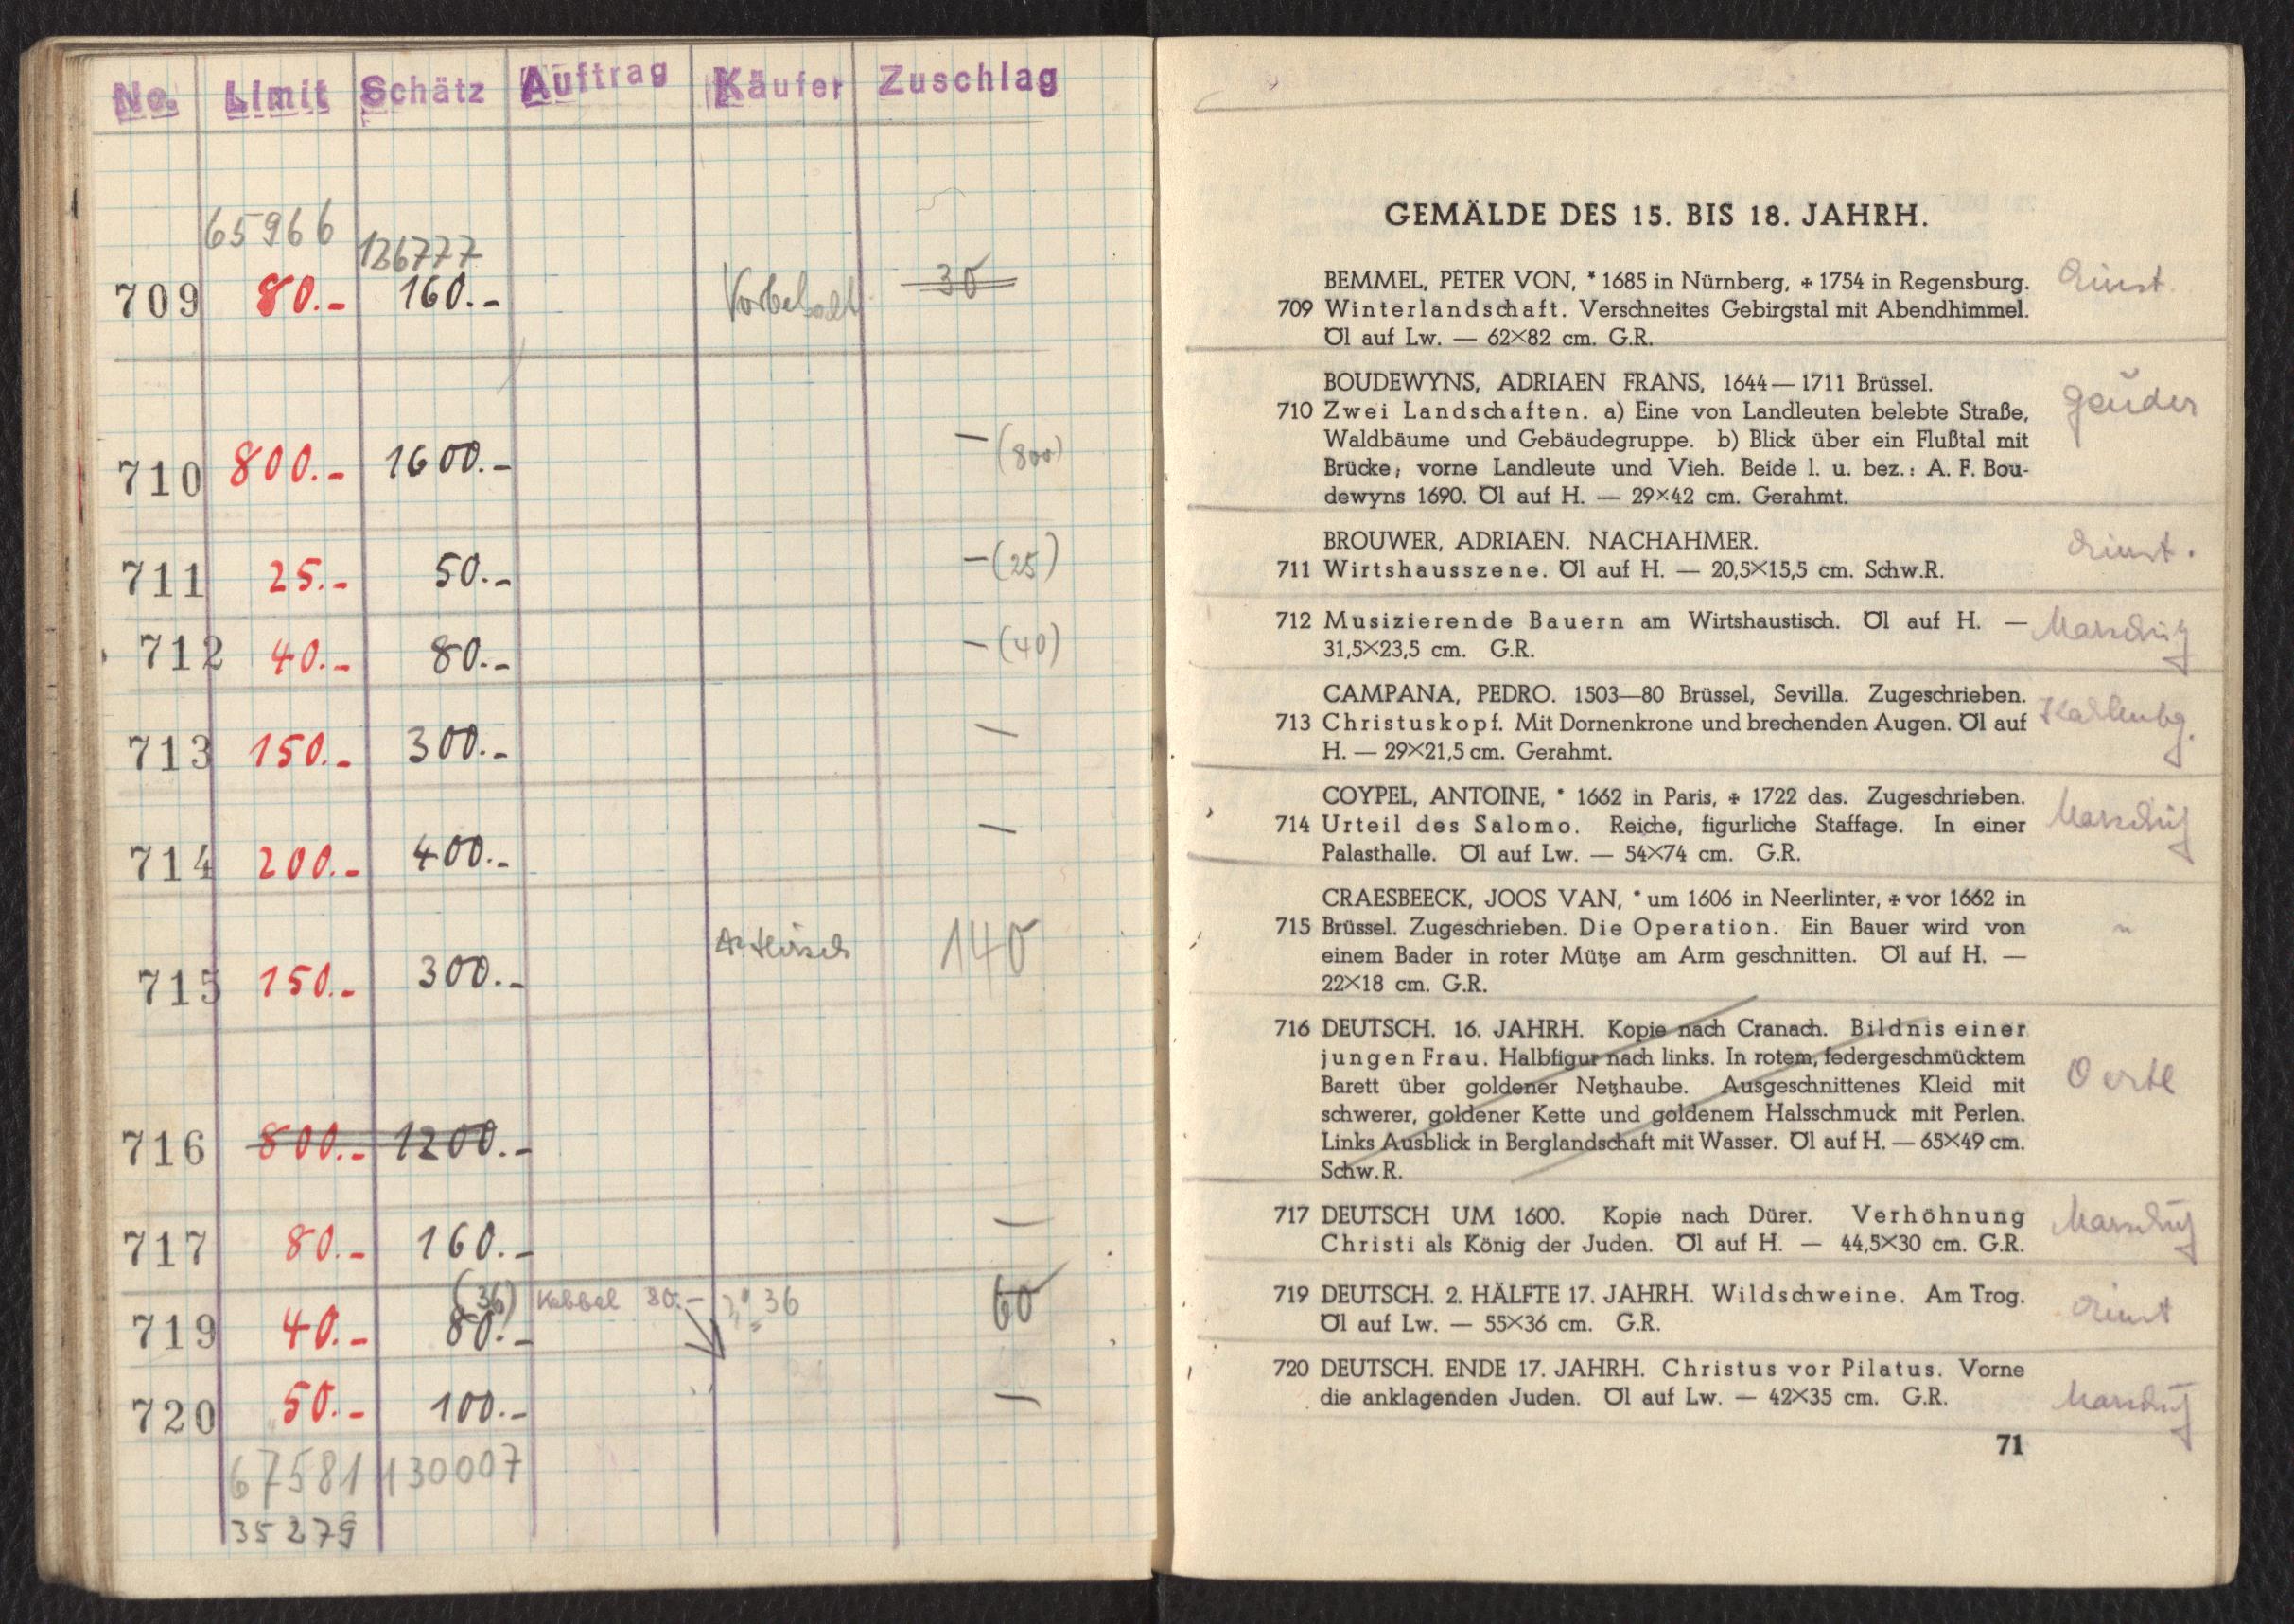 No. Limit Schätz Auftrag Käufer Zuschlag
65966 126777
709 80.- 160.- Vorbehalt 30
710 800.- 1600.- — (800)
711 25.- 50.- — (25)
712 40.- 80.- — (40)
713 150.- 300.- —
714 200.- 400.- —
715 150.- 300.- 140
716 800.- 1200.-
717 80.- 160.- —
(36) 80.- 36
719 40.- 80.- 60
720 50.- 100.- —
67581 130007
35279
GEMÄLDE DES 15. BIS 18. JAHRH.
BEMMEL, PETER VON, * 1685 in Nürnberg, + 1754 in Regensburg.
709 Winterlandschaft. Verschneites Gebirgstal mit Abendhimmel.
Öl auf Lw. — 62×82 cm. G.R.
BOUDEWYNS, ADRIAEN FRANS, 1644—1711 Brüssel.
710 Zwei Landschaften. a) Eine von Landleuten belebte Straße,
Waldbäume und Gebäudegruppe. b) Blick über ein Flußtal mit
Brücke; vorne Landleute und Vieh. Beide l. u. bez.: A. F. Bou-
dewyns 1690. Öl auf H. — 29×42 cm. Gerahmt.
BROUWER, ADRIAEN. NACHAHMER.
711 Wirtshausszene. Öl auf H. — 20,5×15,5 cm. Schw.R.
712 Musizierende Bauern am Wirtshaustisch. Öl auf H. —
31,5×23,5 cm. G.R.
CAMPANA, PEDRO. 1503—80 Brüssel, Sevilla. Zugeschrieben.
713 Christuskopf. Mit Dornenkrone und brechenden Augen. Öl auf
H. — 29×21,5 cm. Gerahmt.
COYPEL, ANTOINE, * 1662 in Paris, + 1722 das. Zugeschrieben.
714 Urteil des Salomo. Reiche, figurliche Staffage. In einer
Palasthalle. Öl auf Lw. — 54×74 cm. G.R.
CRAESBEECK, JOOS VAN, * um 1606 in Neerlinter, + vor 1662 in
715 Brüssel. Zugeschrieben. Die Operation. Ein Bauer wird von
einem Bader in roter Mütze am Arm geschnitten. Öl auf H. —
22×18 cm. G.R.
716 DEUTSCH. 16. JAHRH. Kopie nach Cranach. Bildnis einer
jungen Frau. Halbfigur nach links. In rotem, federgeschmücktem
Barett über goldener Netzhaube. Ausgeschnittenes Kleid mit
schwerer, goldener Kette und goldenem Halsschmuck mit Perlen.
Links Ausblick in Berglandschaft mit Wasser. Öl auf H. — 65×49 cm.
Schw.R.
Oertl
717 DEUTSCH UM 1600. Kopie nach Dürer. Verhöhnung
Christi als König der Juden. Öl auf H. — 44,5×30 cm. G.R.
719 DEUTSCH. 2. HÄLFTE 17. JAHRH. Wildschweine. Am Trog.
Öl auf Lw. — 55×36 cm. G.R.
720 DEUTSCH. ENDE 17. JAHRH. Christus vor Pilatus. Vorne
die anklagenden Juden. Öl auf Lw. — 42×35 cm. G.R.
71